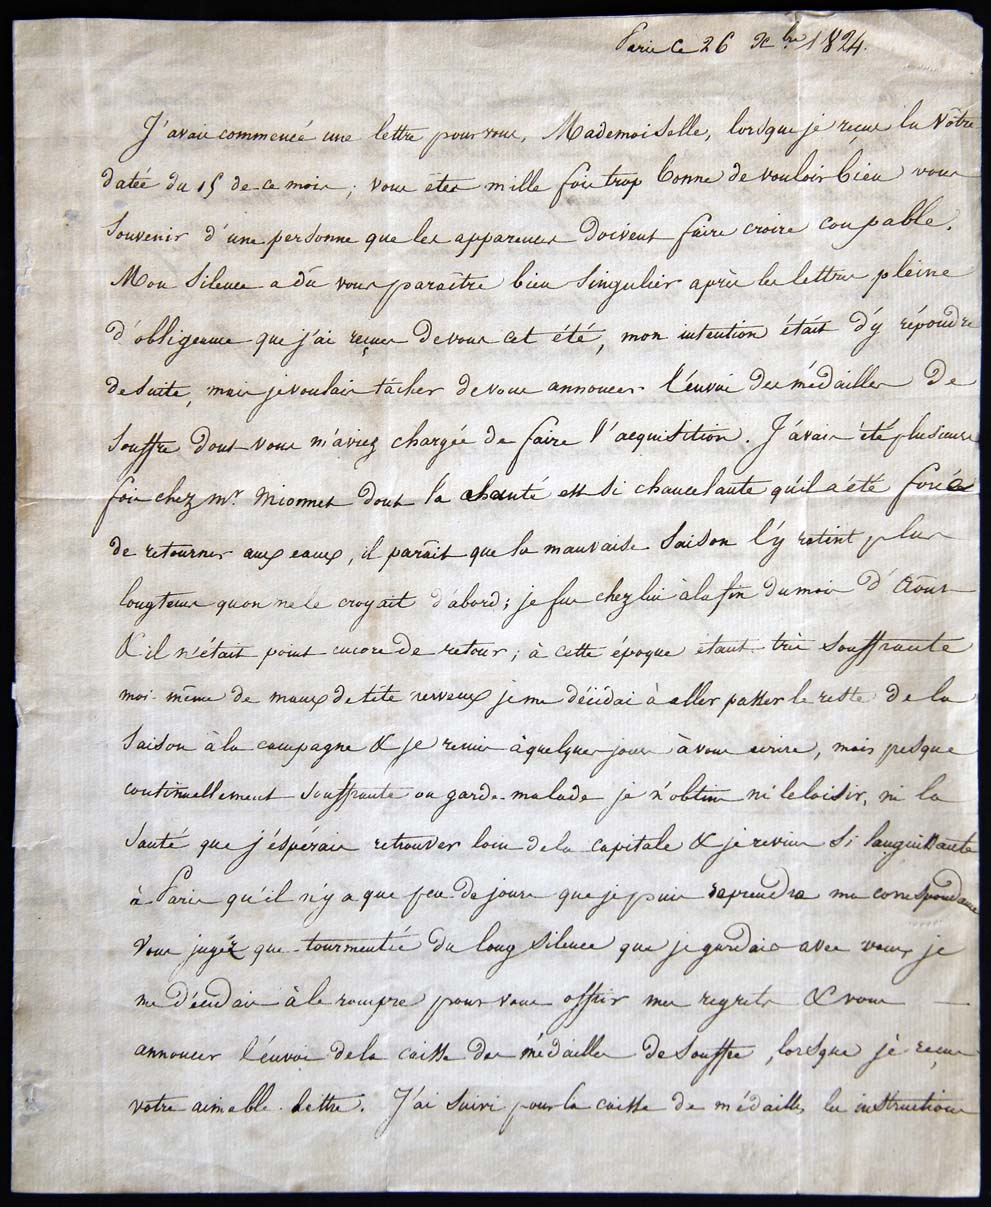 Paris ce 26 Xbre 1824.
J'avais commencé une lettre pour vous, Mademoiselle, lorsque je reçus la vôtre
datée du 15 de ce mois; vous êtes mille fois trop bonne de vouloir bien vous
souvenir d'une personne que les apparences doivent faire croire coupable.
Mon silence a dû vous paraître bien singulier après les lettres pleine
d'obligeance que j'ai reçues de vous cet été, mon intention était d'y répondre
de suite, mais je voulais tâcher de vous annoncer l'envoi des médailles de
souffre dont vous m'aviez chargée de faire l'acquisition. J'avais été plusieurs
fois chez mr. Mionnet dont la santé est si chancelante qu'il a été forcé
de retourner aux eaux, il parâit que la mauvaise saison l'y retint plus
longtems qu'on ne le croyait d'abord; je fus chez lui à la fin du mois d'Août
& il n'était point encore de retour; à cette époque étant très souffrante
moi-même de maux de tête nerveux je me décidai à aller passer le reste de la
saison à la campagne & je remis à quelques jours à vous écrire, mais presque
continuellement souffrante ou garde-malade je n'obtins ni le loisir, ni la
santé que j'éspérais retrouver loin de la capitale & je revins si languissante
à Paris qu'il n'y a que peu de jours que je puis reprendre ma correspondance
Vous jugéz que tourmentée du long silence que je gardais avec vous, je
me décidais à le rompre pour vous offrir mes regrets & vous
annoncer l'envoi de la caisse des médailles de souffre, lorsque je reçus
votre aimable lettre. J'ai suivi pour la caisse de médailles les instructions